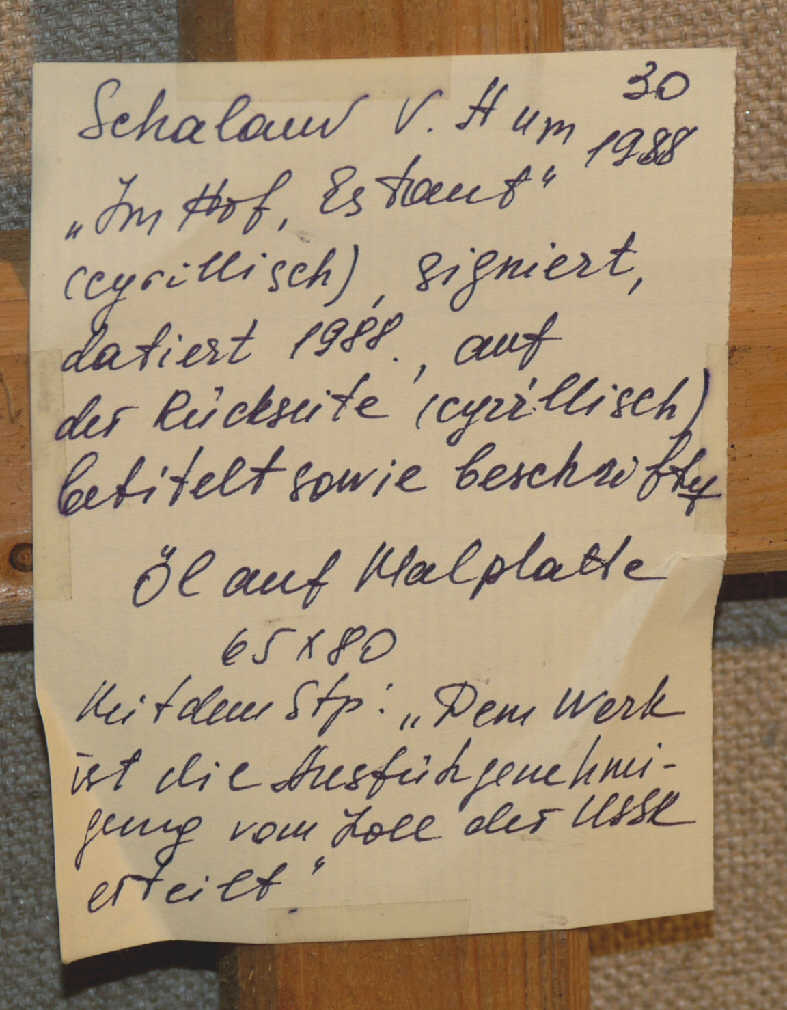 30
Schalauv V. Hum 1988
„Im Hof, Es taut“
(cyrillisch), signiert,
datiert 1988., auf
der Rückseite (cyrillisch)
betitelt sowie beschriftet
Öl auf Malplatte
65 x 80
Mit dem Stp: „Dem Werk
ist die Ausfuhrgenehmi-
gung vom Zoll der UdSSR
erteilt“